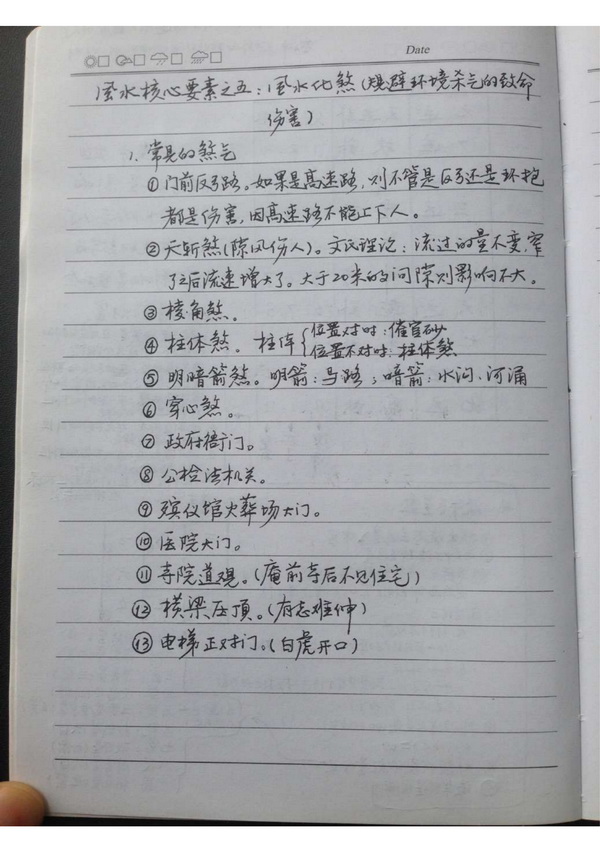 Date
风水核心要素之五：风水化煞（规避环境杀气的致命
伤害）
1. 常见的煞气
①门前反弓路。如果是高速路，则不管是反弓还是环抱
都是伤害，因高速路不能上下人。
②天斩煞（隙风伤人）。文氏理论：流过的量不变，窄
了之后流速增大了。大于20米的间隙则影响不大。
③棱角煞。
④柱体煞。柱阵{位置对时：催官砂
位置不对时：柱体煞
⑤明暗箭煞。明箭：马路；暗箭：水沟、河涌
⑥穿心煞。
⑦政府衙门。
⑧公检法机关。
⑨殡仪馆火葬场大门。
⑩医院大门。
⑪寺院道观。（庵前寺后不见住宅）
⑫横梁压顶。（有志难伸）
⑬电梯正对门。（白虎开口）